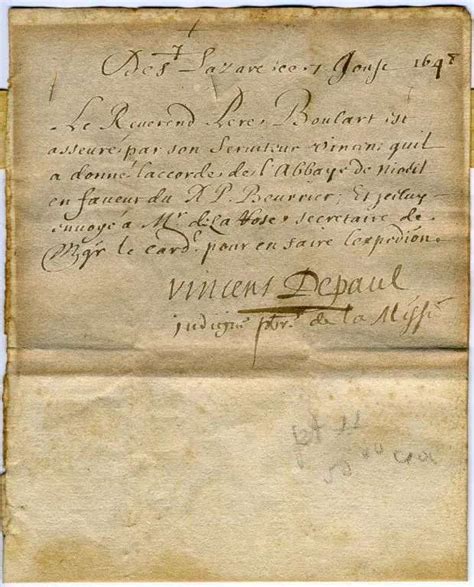 De St Lazare ce 7 1648
Le Reverend Pere Boulart est
asseuré par son serviteur Vincent quil
a donné laccorde de l'Abbaye de
en faveur du R P. Beurrier, Et
envoyé à Mr de la Vose secretaire de
Mgr le Card. pour en faire lexpedion.
Vincens Depaul
indigne ptre de la Missi